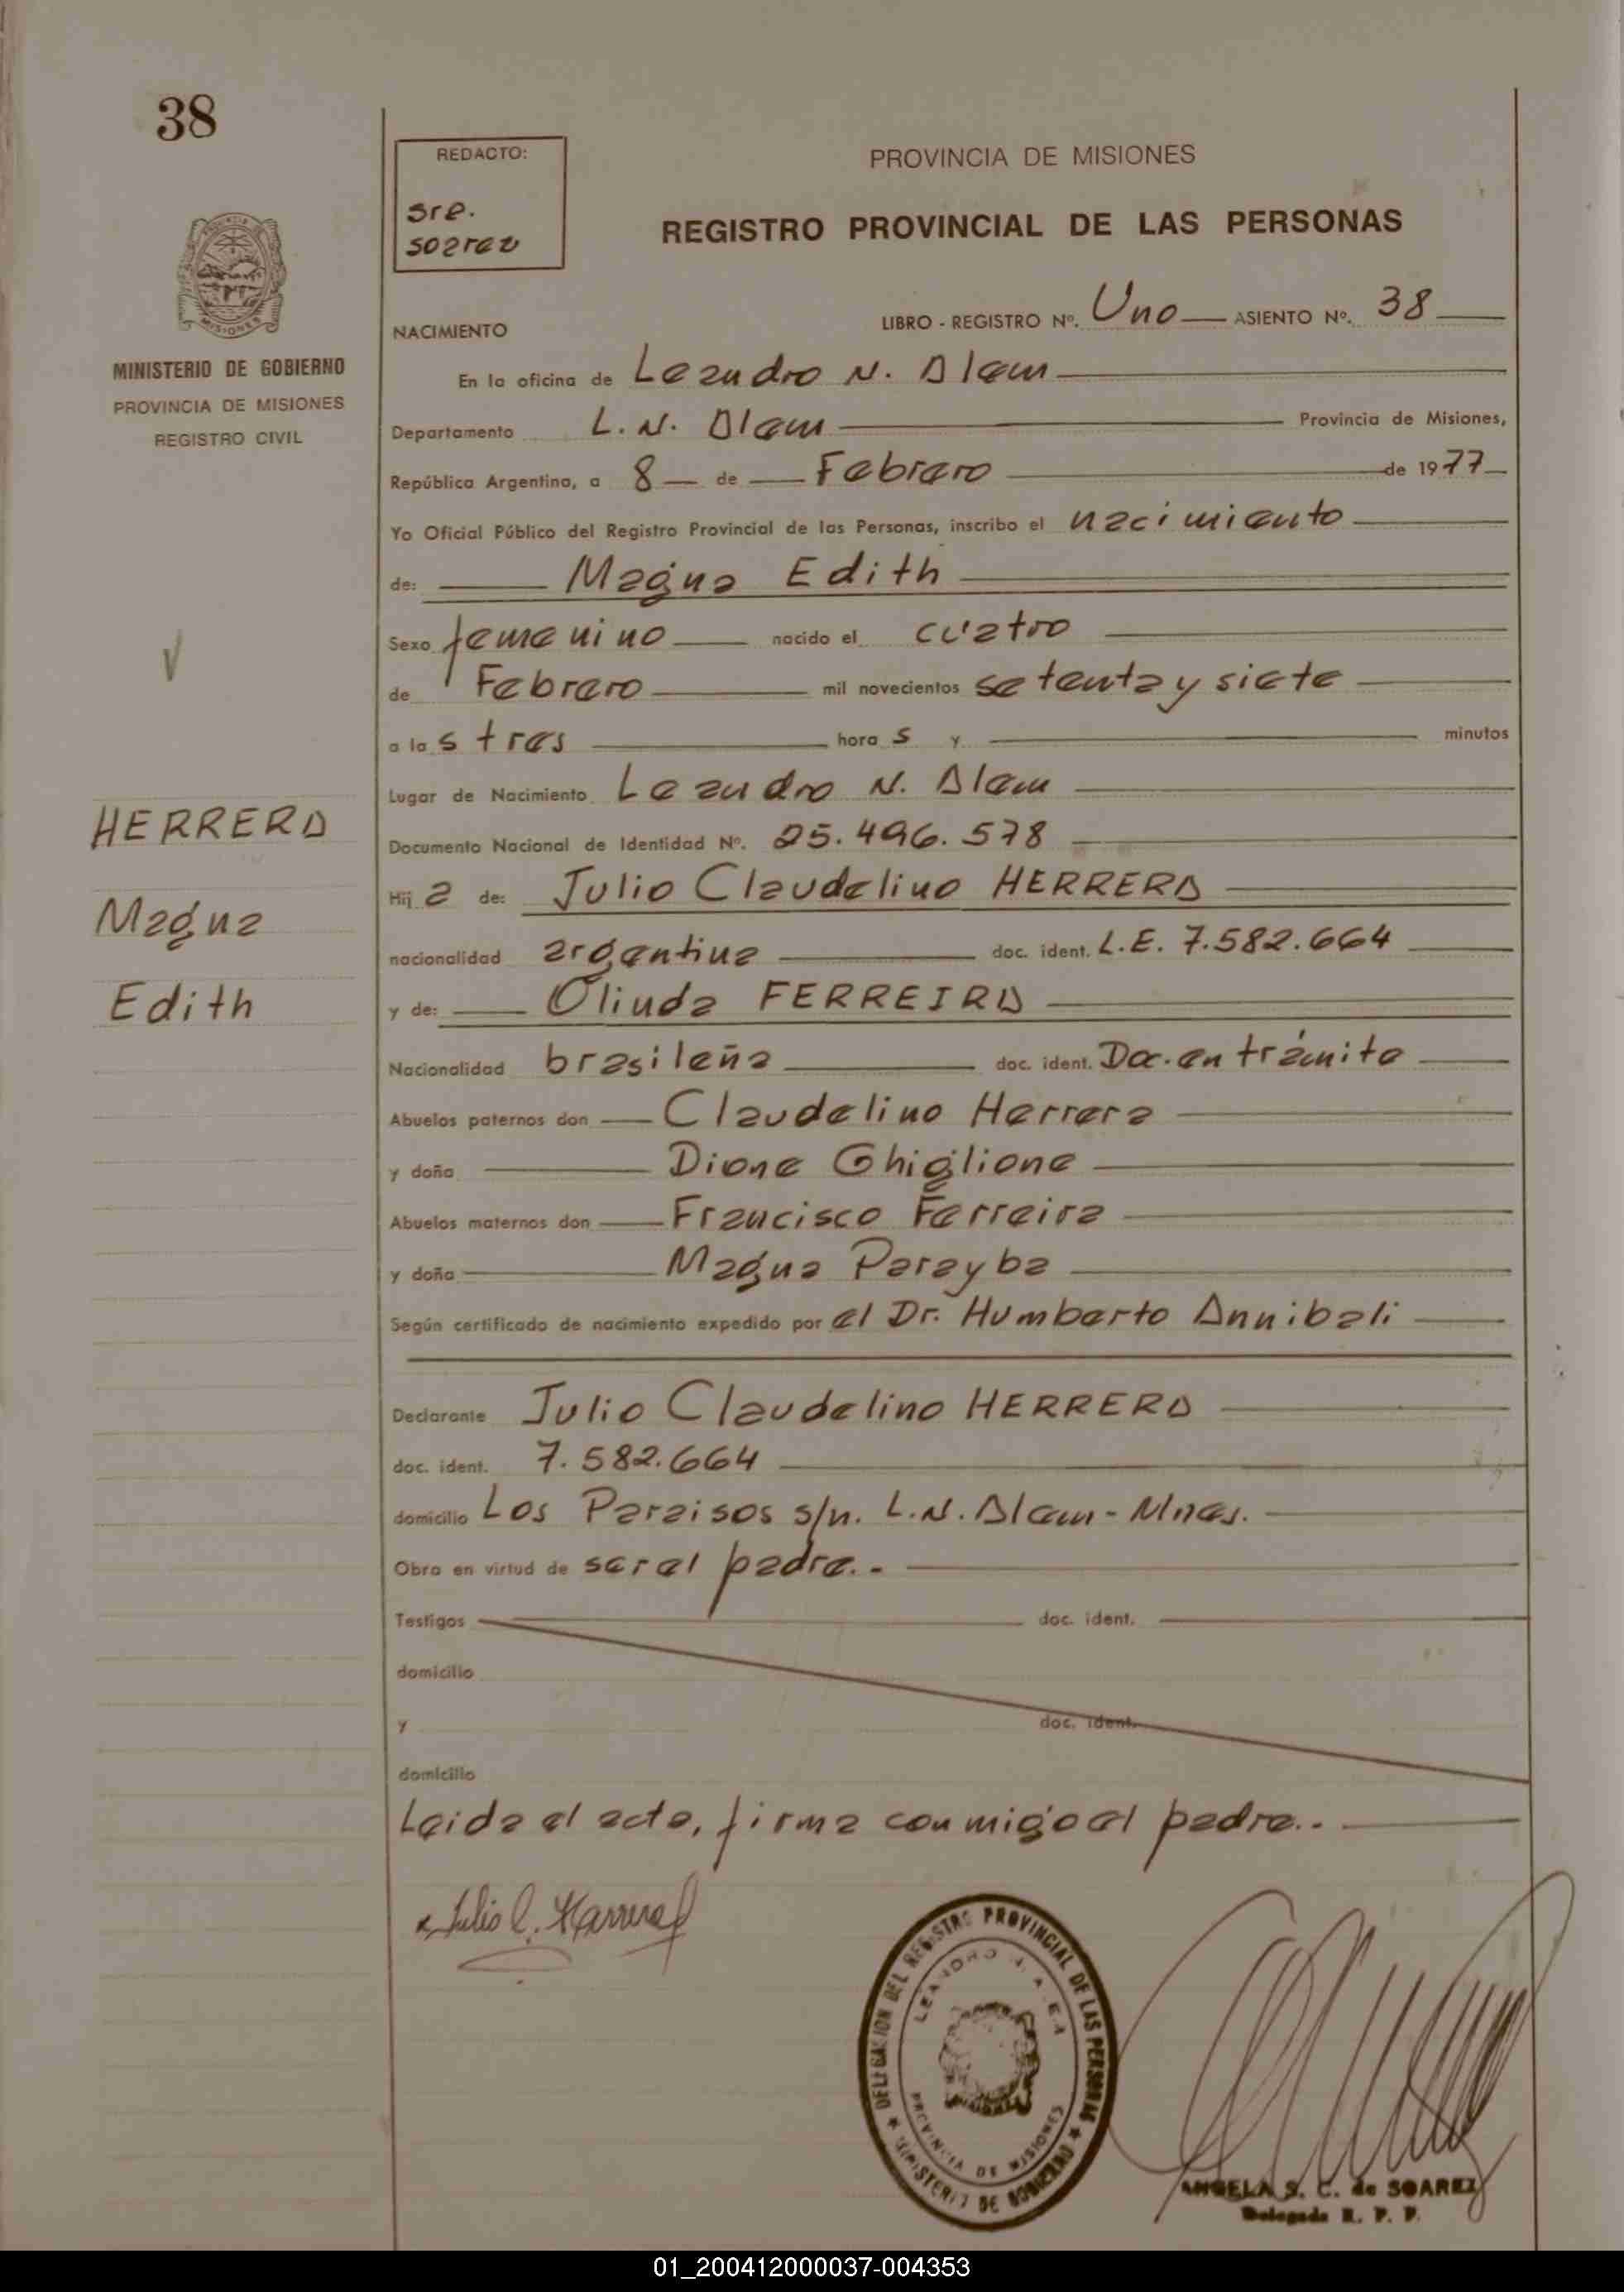 38
REDACTO:
Sra.
Soarez
PROVINCIA DE MISIONES
REGISTRO PROVINCIAL DE LAS PERSONAS
MINISTERIO DE GOBIERNO
PROVINCIA DE MISIONES
REGISTRO CIVIL
NACIMIENTO
LIBRO - REGISTRO Nº. Uno ASIENTO Nº. 38
En la oficina de Leandro N. Alem
Departamento L.N. Alem Provincia de Misiones,
República Argentina, a 8 de Febrero de 1977
Yo Oficial Público del Registro Provincial de las Personas, inscribo el nacimiento
de: Magna Edith
Sexo femenino nacido el cuatro
de Febrero mil novecientos setenta y siete
a las tres horas y minutos
Lugar de Nacimiento Leandro N. Alem
Documento Nacional de Identidad Nº. 25.496.578
Hija de: Julio Claudelino HERRERA
nacionalidad argentina doc. ident. L.E. 7.582.664
y de: Olinda FERREIRA
Nacionalidad brasileña doc. ident. Doc. en trámite
Abuelos paternos don Claudelino Herrera
y doña Dione Ghiglione
Abuelos maternos don Francisco Ferreira
y doña Magna Parayba
Según certificado de nacimiento expedido por el Dr. Humberto Annibali
Declarante Julio Claudelino HERRERA
doc. ident. 7.582.664
domicilio Los Paraisos s/n. L.N. Alem - Mnes.
Obra en virtud de ser el padre.-
Testigos doc. ident.
domicilio
y doc. ident.
domicilio
Leida el acta, firma conmigo el padre.-
HERRERA
Magna
Edith
Julio C. Herrera
DELEGACION DEL REGISTRO PROVINCIAL DE LAS PERSONAS
MINISTERIO DE GOBIERNO
LEANDRO N. ALEM
PROVINCIA DE MISIONES
ANGELA S. C. de SOAREZ
Delegada R. P. P.
01_200412000037-004353